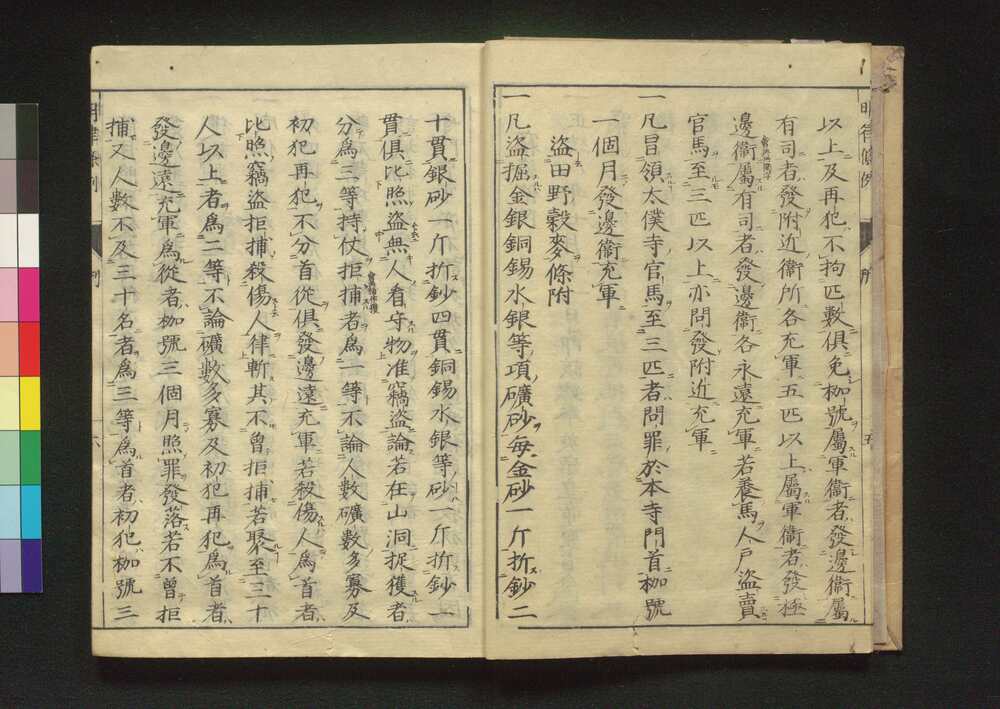 以上及再犯不拘匹數俱免枷號屬軍衞者發邊衞屬
有司者發附近衞所各充軍五匹以上屬軍衞者發極
邊衞屬有司者發邊衞各永遠充軍若養馬人戸盜賣
官馬至三匹以上亦問發附近充軍
一凡冒領太僕寺官馬至三匹者問罪於本寺門首枷號
一個月發邊衞充軍
盜田野穀麥條附
一凡盜掘金銀銅錫水銀等項礦砂每金砂一斤折鈔二
十貫銀砂一斤折鈔四貫銅錫水銀等砂一斤折鈔一
貫俱比照盜無人看守物准竊盜論若在山洞捉獲者
分爲三等持仗拒捕者爲一等不論人數礦數多寡及
初犯再犯不分首從俱發邊遠充軍若殺傷人爲首者
比照竊盜拒捕殺傷人律斬其不曾拒捕若聚至三十
人以上者爲二等不論礦數多寡及初犯再犯爲首者
發邊遠充軍爲從者枷號三個月照罪發落若不曾拒
捕又人數不及三十名者爲三等爲首者初犯枷號三
明律條例
六